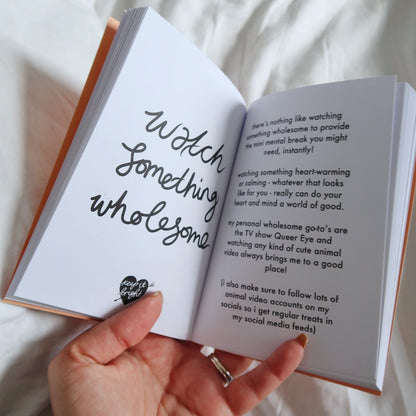 watch
something
wholesome
keep it
bright
there's nothing like watching
something wholesome to provide
the mini mental break you might
need, instantly!
watching something heart-warming
or calming - whatever that looks
like for you - really can do your
heart and mind a world of good.
my personal wholesome go-to's are
the TV show Queer Eye and
watching any kind of cute animal
video always brings me to a good
place!
(i also make sure to follow lots of
animal video accounts on my
socials so i get regular treats in
my social media feeds)